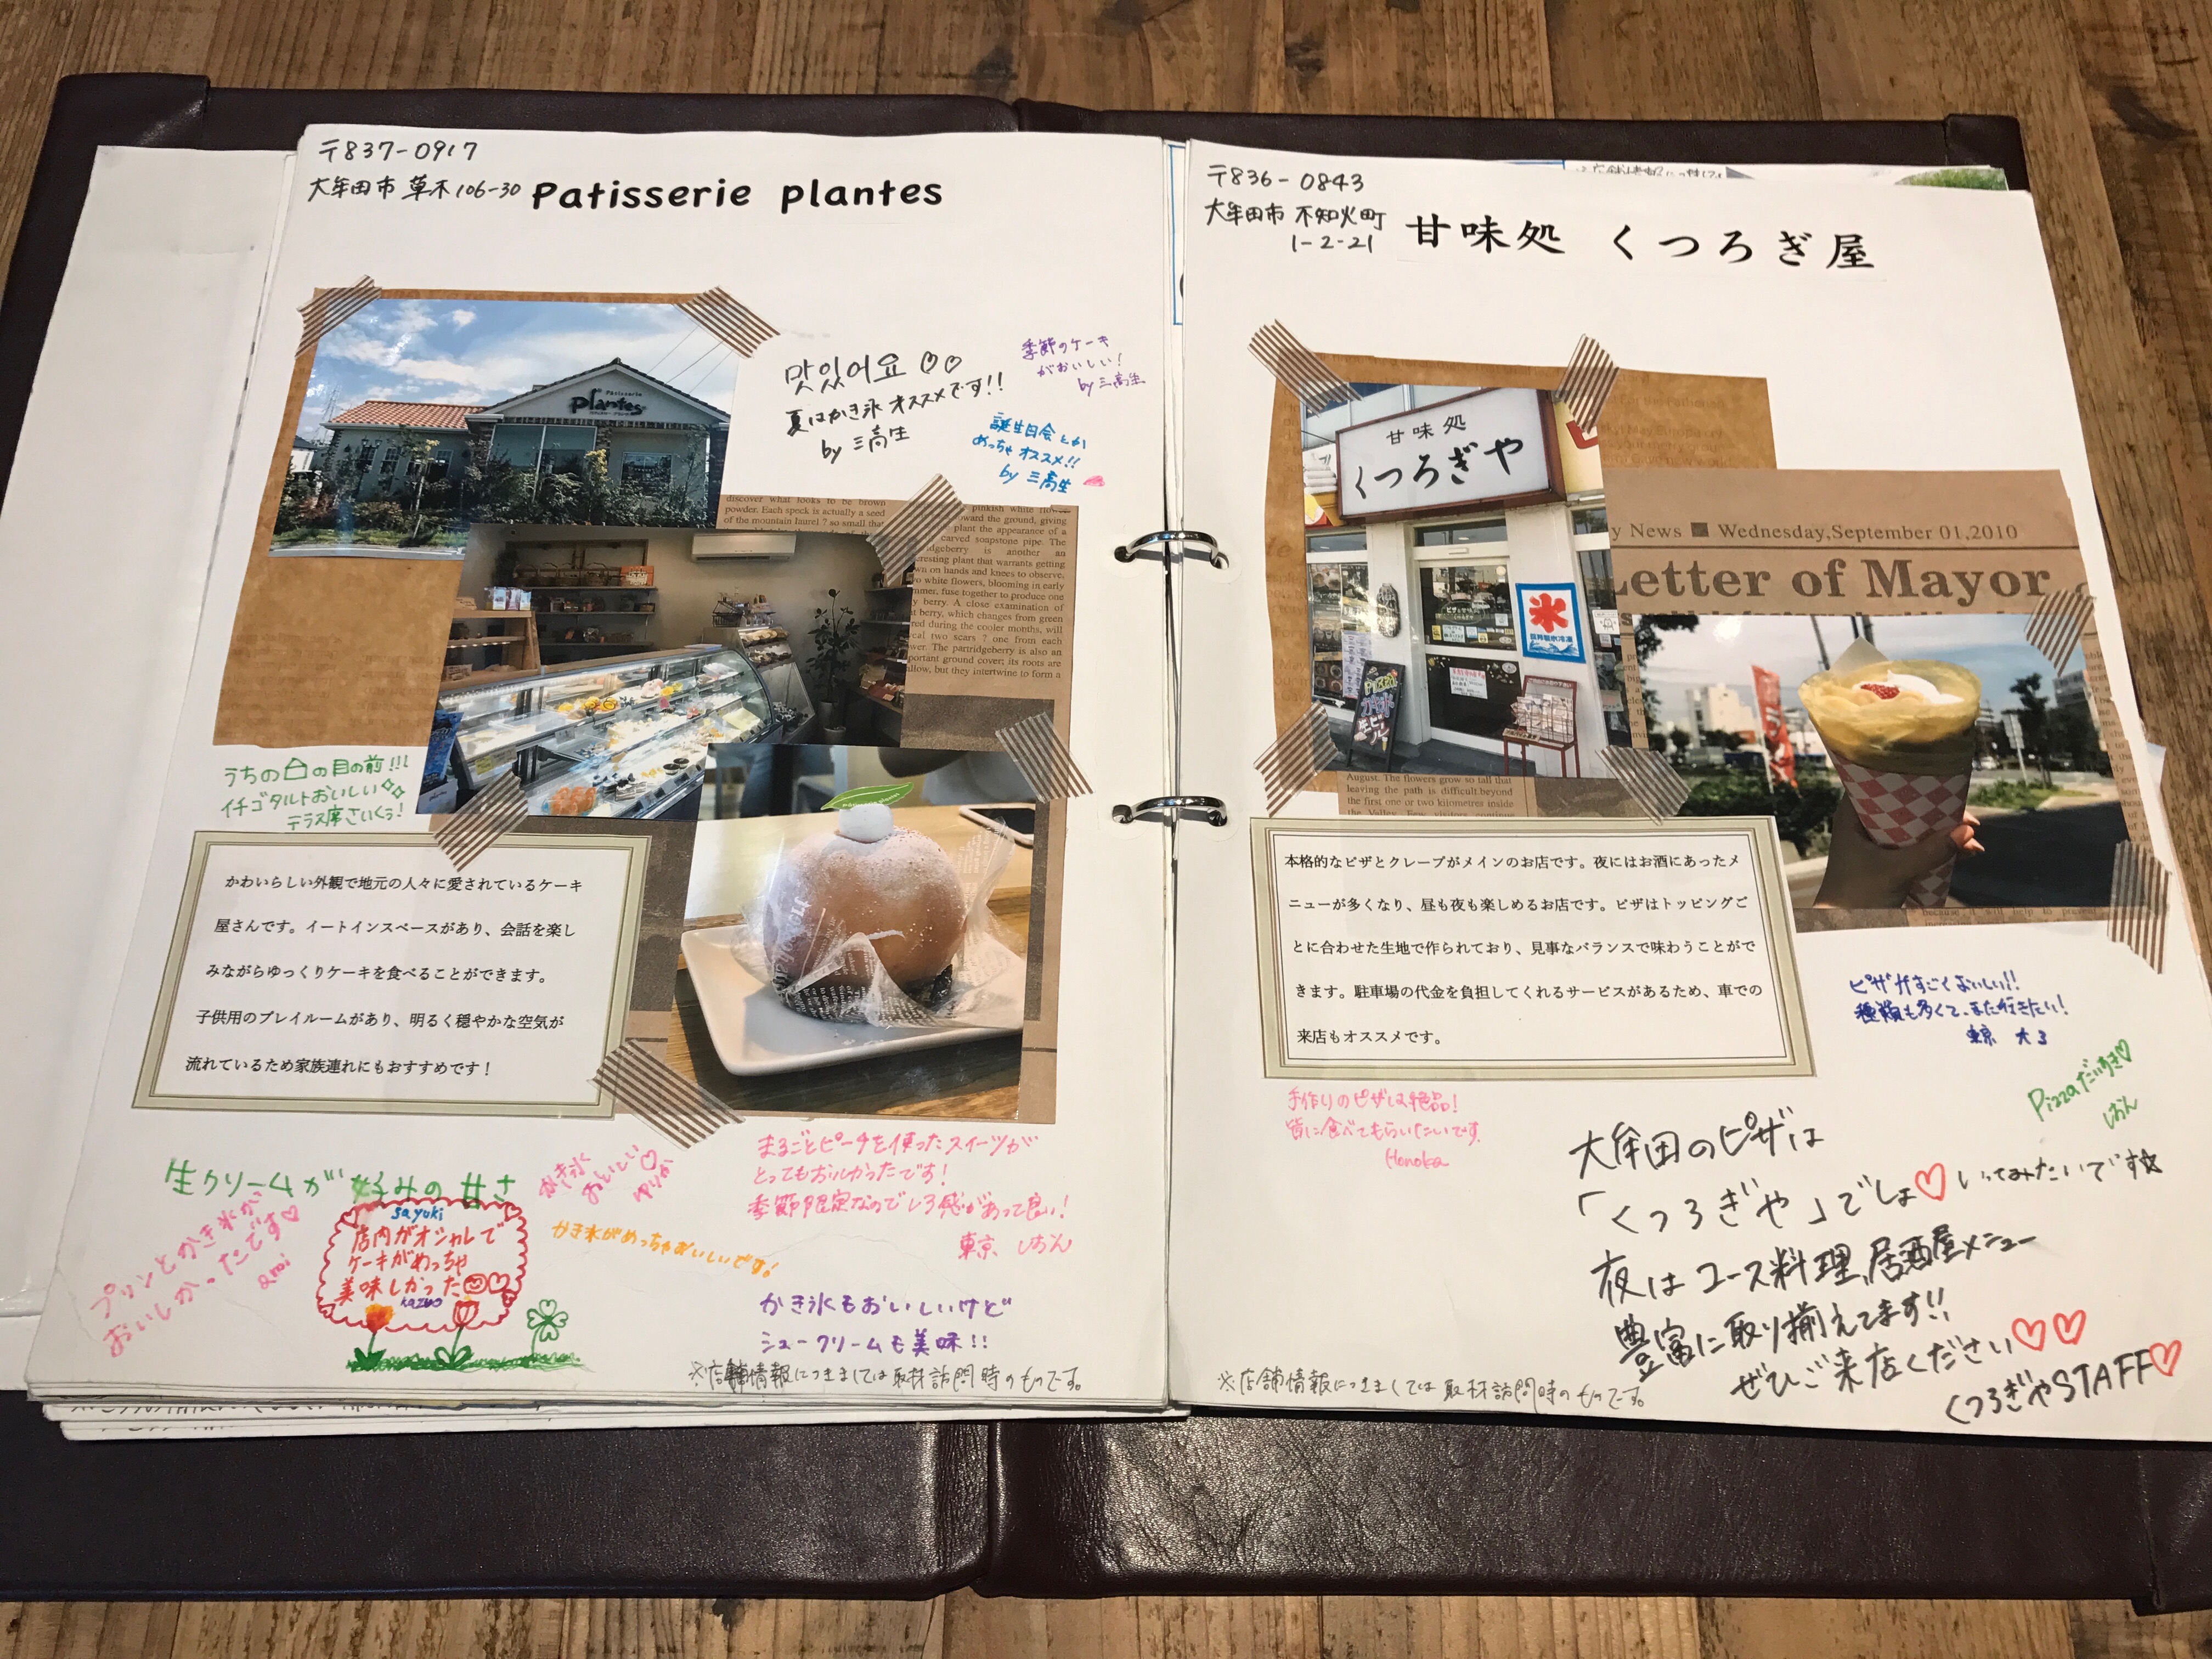 〒837-0917
大牟田市 草木106-30
Patisserie plantes
Pâtisserie
plantes
맛있어요♡♡
夏はかき氷オススメです!!
by 三高生
季節のケーキ
がおいしい!
by 三高生
誕生日会とか
めっちゃオススメ!!
by 三高生
discover what looks to be brown
powder. Each speck is actually a seed
of the mountain laurel ? so small that
pinkish white
toward the ground, giving
plant the appearance of a
carved soapstone pipe. The
is another an
plant that warrants getting
on hands and knees to observe.
white flowers, blooming in early
fuse together to produce one
berry. A close examination of
berry, which changes from green
red during the cooler months, will
two scars ? one from each
The partridgeberry is also an
ground cover; its roots are
but they intertwine to form a
うちの の目の前!!!
イチゴタルトおいしい
テラス席さいくぅ!
かわいらしい外観で地元の人々に愛されているケーキ
屋さんです。イートインスペースがあり、会話を楽し
みながらゆっくりケーキを食べることができます。
子供用のプレイルームがあり、明るく穏やかな空気が
流れているため家族連れにもおすすめです！
生クリームが好みの甘さ
sayuki
店内がオシャレで
ケーキがめっちゃ
美味しかった♡
kazuo
プリンとかき氷がい
おいしかったです♡
かき氷
おいしい♡
ゆりか
まるごとピーチを使ったスイーツが
とってもおいしかったです!
季節限定なのでレア感があって良い!
東京 しおん
かき氷がめっちゃおいしいです!
かき氷もおいしいけど
シュークリームも美味!!
※店舗情報につきましては取材訪問時のものです。
〒836-0843
大牟田市 不知火町
1-2-21
甘味処 くつろぎ屋
甘味処
くつろぎや
氷
Pizza
かき氷
生ビール
News ■ Wednesday,September 01,2010
Letter of Mayor
August. The flowers grow so tall that
leaving the path is difficult.beyond
the first one or two kilometres inside
the Valley. Few visitors continue
本格的なピザとクレープがメインのお店です。夜にはお酒にあったメ
ニューが多くなり、昼も夜も楽しめるお店です。ピザはトッピングご
とに合わせた生地で作られており、見事なバランスで味わうことがで
きます。駐車場の代金を負担してくれるサービスがあるため、車での
来店もオススメです。
ピザがすごくおいしい!!
種類も多くて、また行きたい!
東京
Pizzaだいすき♡
しおん
手作りのピザは絶品!
皆に食べてもらいたいです。
Honoka
大牟田のピザは
「くつろぎや」でしょ♡いってみたいです☆
夜はコース料理、居酒屋メニュー
豊富に取り揃えてます!!
ぜひご来店ください♡♡
くつろぎやSTAFF♡
※店舗情報につきましては取材訪問時のものです。